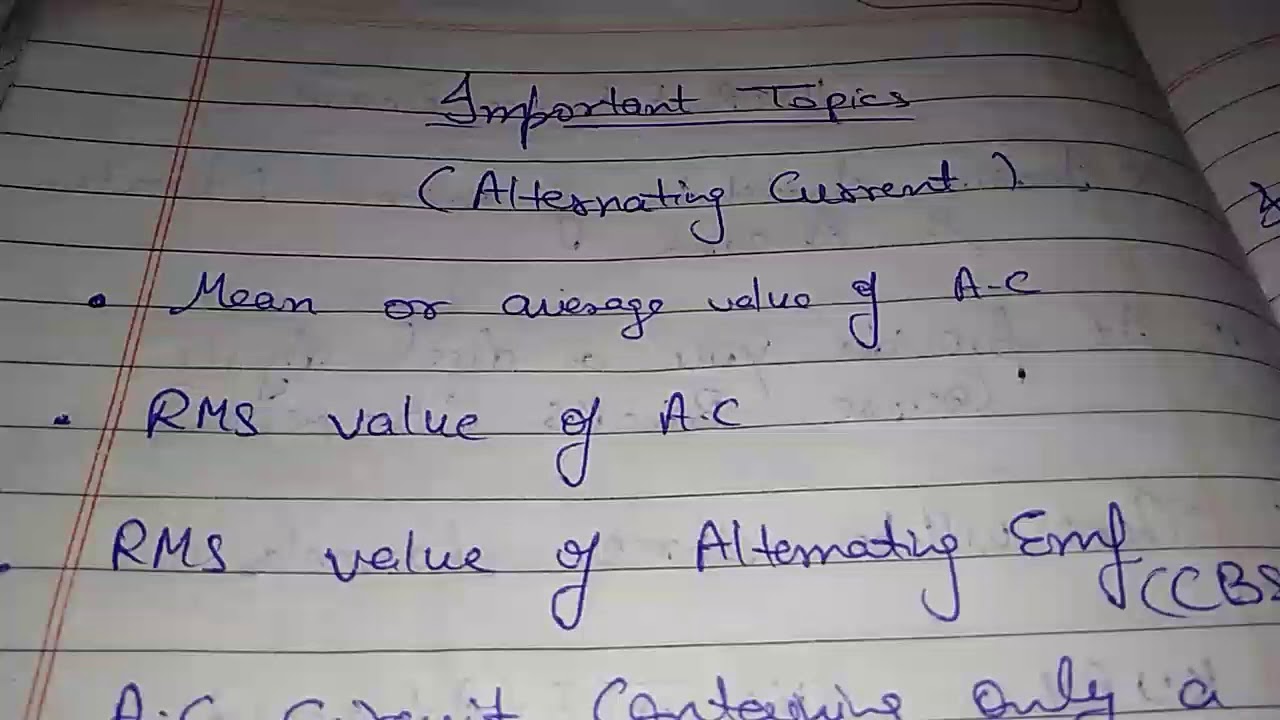 Important Topics
(Alternating Current)
• Mean or average value of A-C
• RMS value of A.C
• RMS value of Alternating Emf
(CBS
A.C Circuit Containing only a